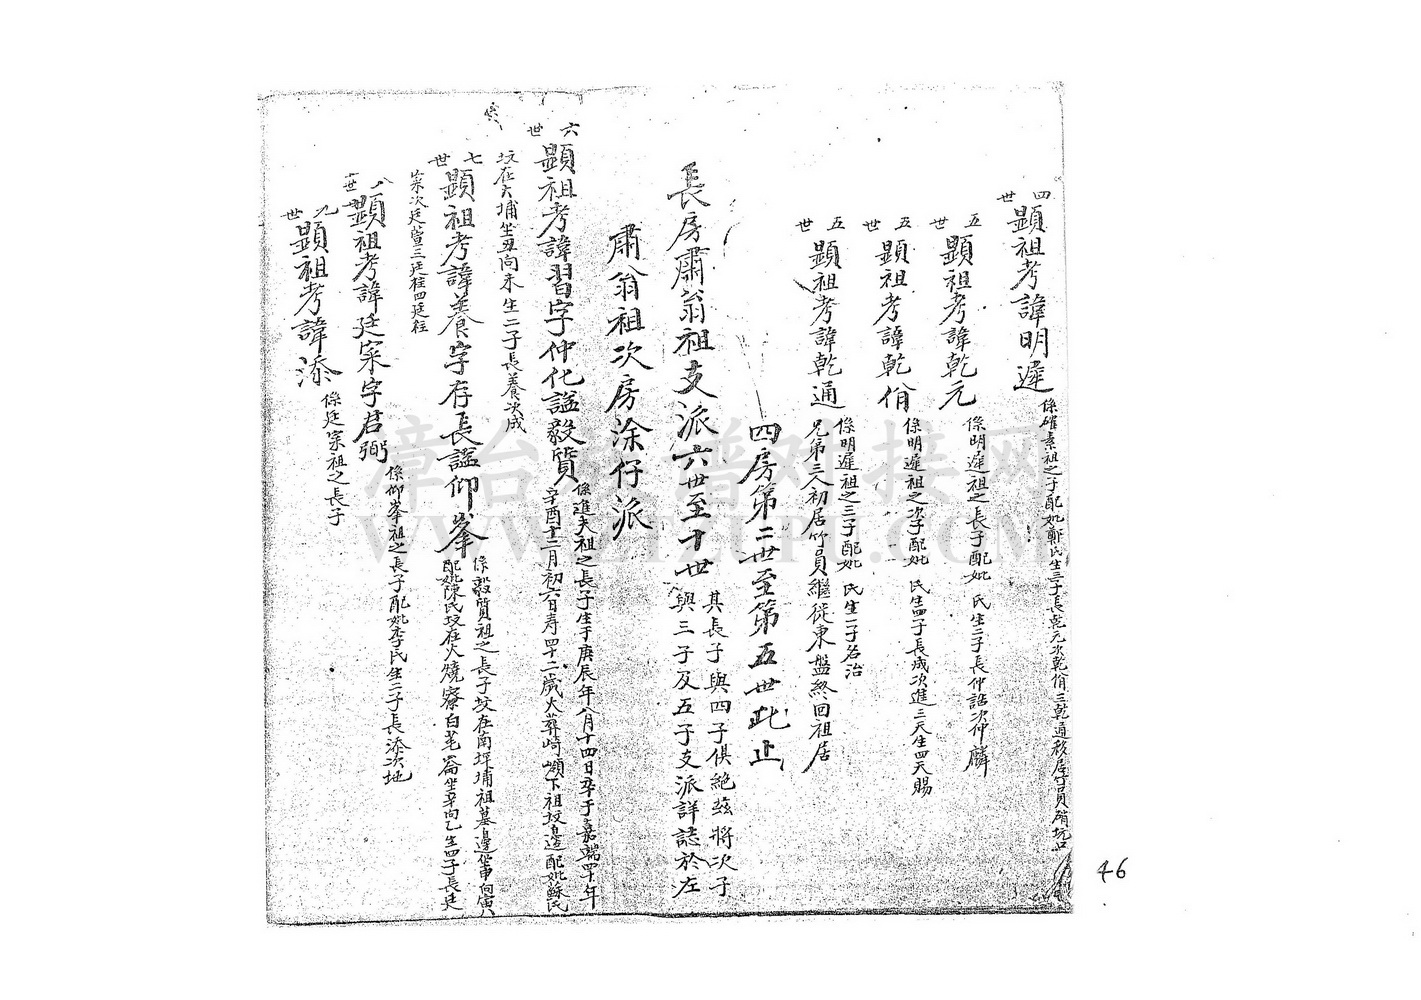 四世
顯祖考諱明遲
係確素祖之子配妣鄭氏生三子長乾元次乾俏三乾通移居竹員嶺坑口
五世
顯祖考諱乾元
係明遲祖之長子配妣 氏生二子長仲喆次仲麟
五世
顯祖考諱乾俏
係明遲祖之次子配妣 氏生四子長成次進三天生四天賜
五世
顯祖考諱乾通
係明遲祖之三子配妣 氏生一子名治
兄弟三人初居竹員繼徙東盤終回祖居
四房第二世至第五世此止
長房肅翁祖支派六世至十世
其長子與四子俱絕茲將次子
與三子及五子支派詳誌於左
肅翁祖次房涂仔派
六世
顯祖考諱習字仲化諡毅質
係進夫祖之長子生于庚辰年八月十四日卒于嘉端四十年
辛酉十二月初六日寿四十二歲大葬崎嶺下祖坟邊配妣蘇氏
坟在大埔坐丑向未生二子長養次成
七世
顯祖考諱養字存長諡仰峯
係毅質祖之長子坟在南坪埔祖墓邊坐申向寅八
配妣陳氏坟在火燒寮白毫崙坐辛向乙生四子長廷
寀次廷萱三廷桂四廷柱
八世
顯祖考諱廷寀字君弼
係仰峯祖之長子配妣李氏生二子長添次地
九世
顯祖考諱添
係廷寀祖之長子
46
漳台族譜对接网
WWW.ZTZUPU.COM